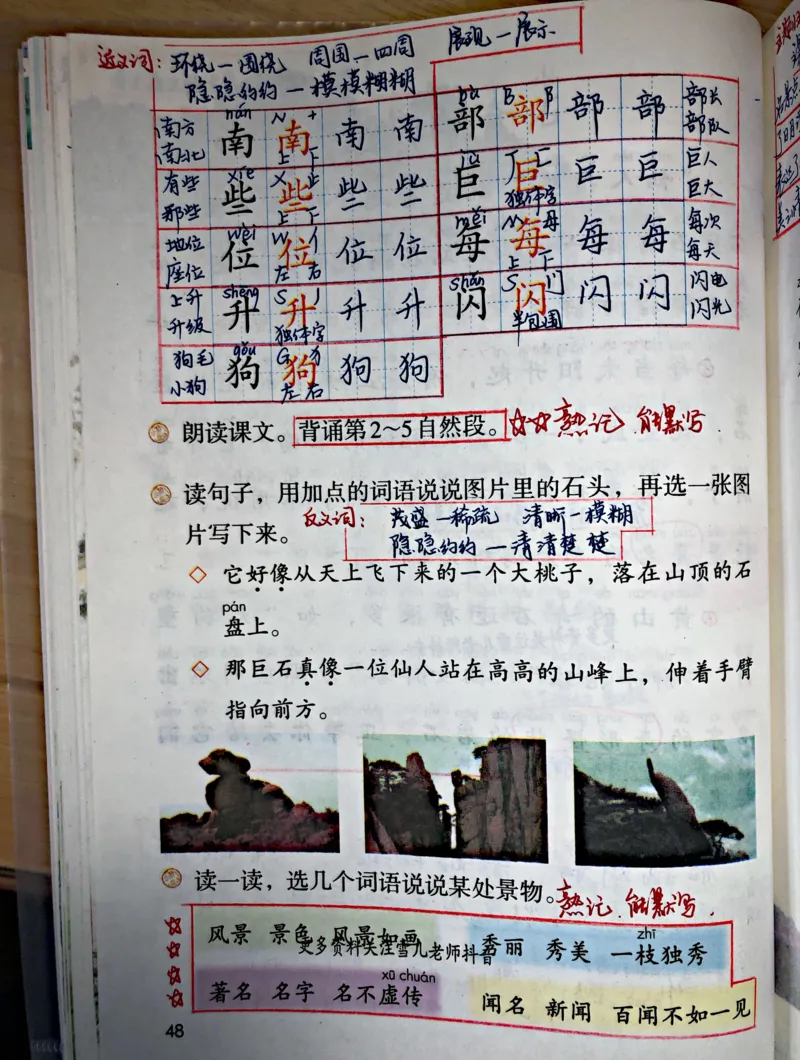 近义词：环绕—围绕 周围—四周 展现—展示
隐隐约约—模模糊糊
nán bù
南方 南 N 南 十 南 南 部 B 部 阝 部 部 部长
南北 上 下 部队
xiē jù
有些 些 X 些 止 些 些 巨 J 巨 匚 巨 巨 巨人
那些 上 下 独体字 巨大
wèi měi
地位 位 W 位 亻 位 位 每 M 每 母 每 每 每次
座位 左 右 上 下 每天
shēng shǎn
上升 升 S 升 丿 升 升 闪 S 闪 门 闪 闪 闪电
升级 独体字 半包围 闪光
gǒu
狗毛 狗 G 狗 犭 狗 狗
小狗 左 右
朗读课文。背诵第2~5自然段。熟记 能默写
读句子，用加点的词语说说图片里的石头，再选一张图
片写下来。 反义词：茂盛—稀疏 清晰—模糊
隐隐约约—清清楚楚
它好像从天上飞下来的一个大桃子，落在山顶的石
pán
盘上。
那巨石真像一位仙人站在高高的山峰上，伸着手臂
指向前方。
读一读，选几个词语说说某处景物。熟记 能默写
zhī
风景 景色 风景如画 秀丽 秀美 一枝独秀
更多资料关注雪九老师抖音
xū chuán
著名 名字 名不虚传 闻名 新闻 百闻不如一见
48